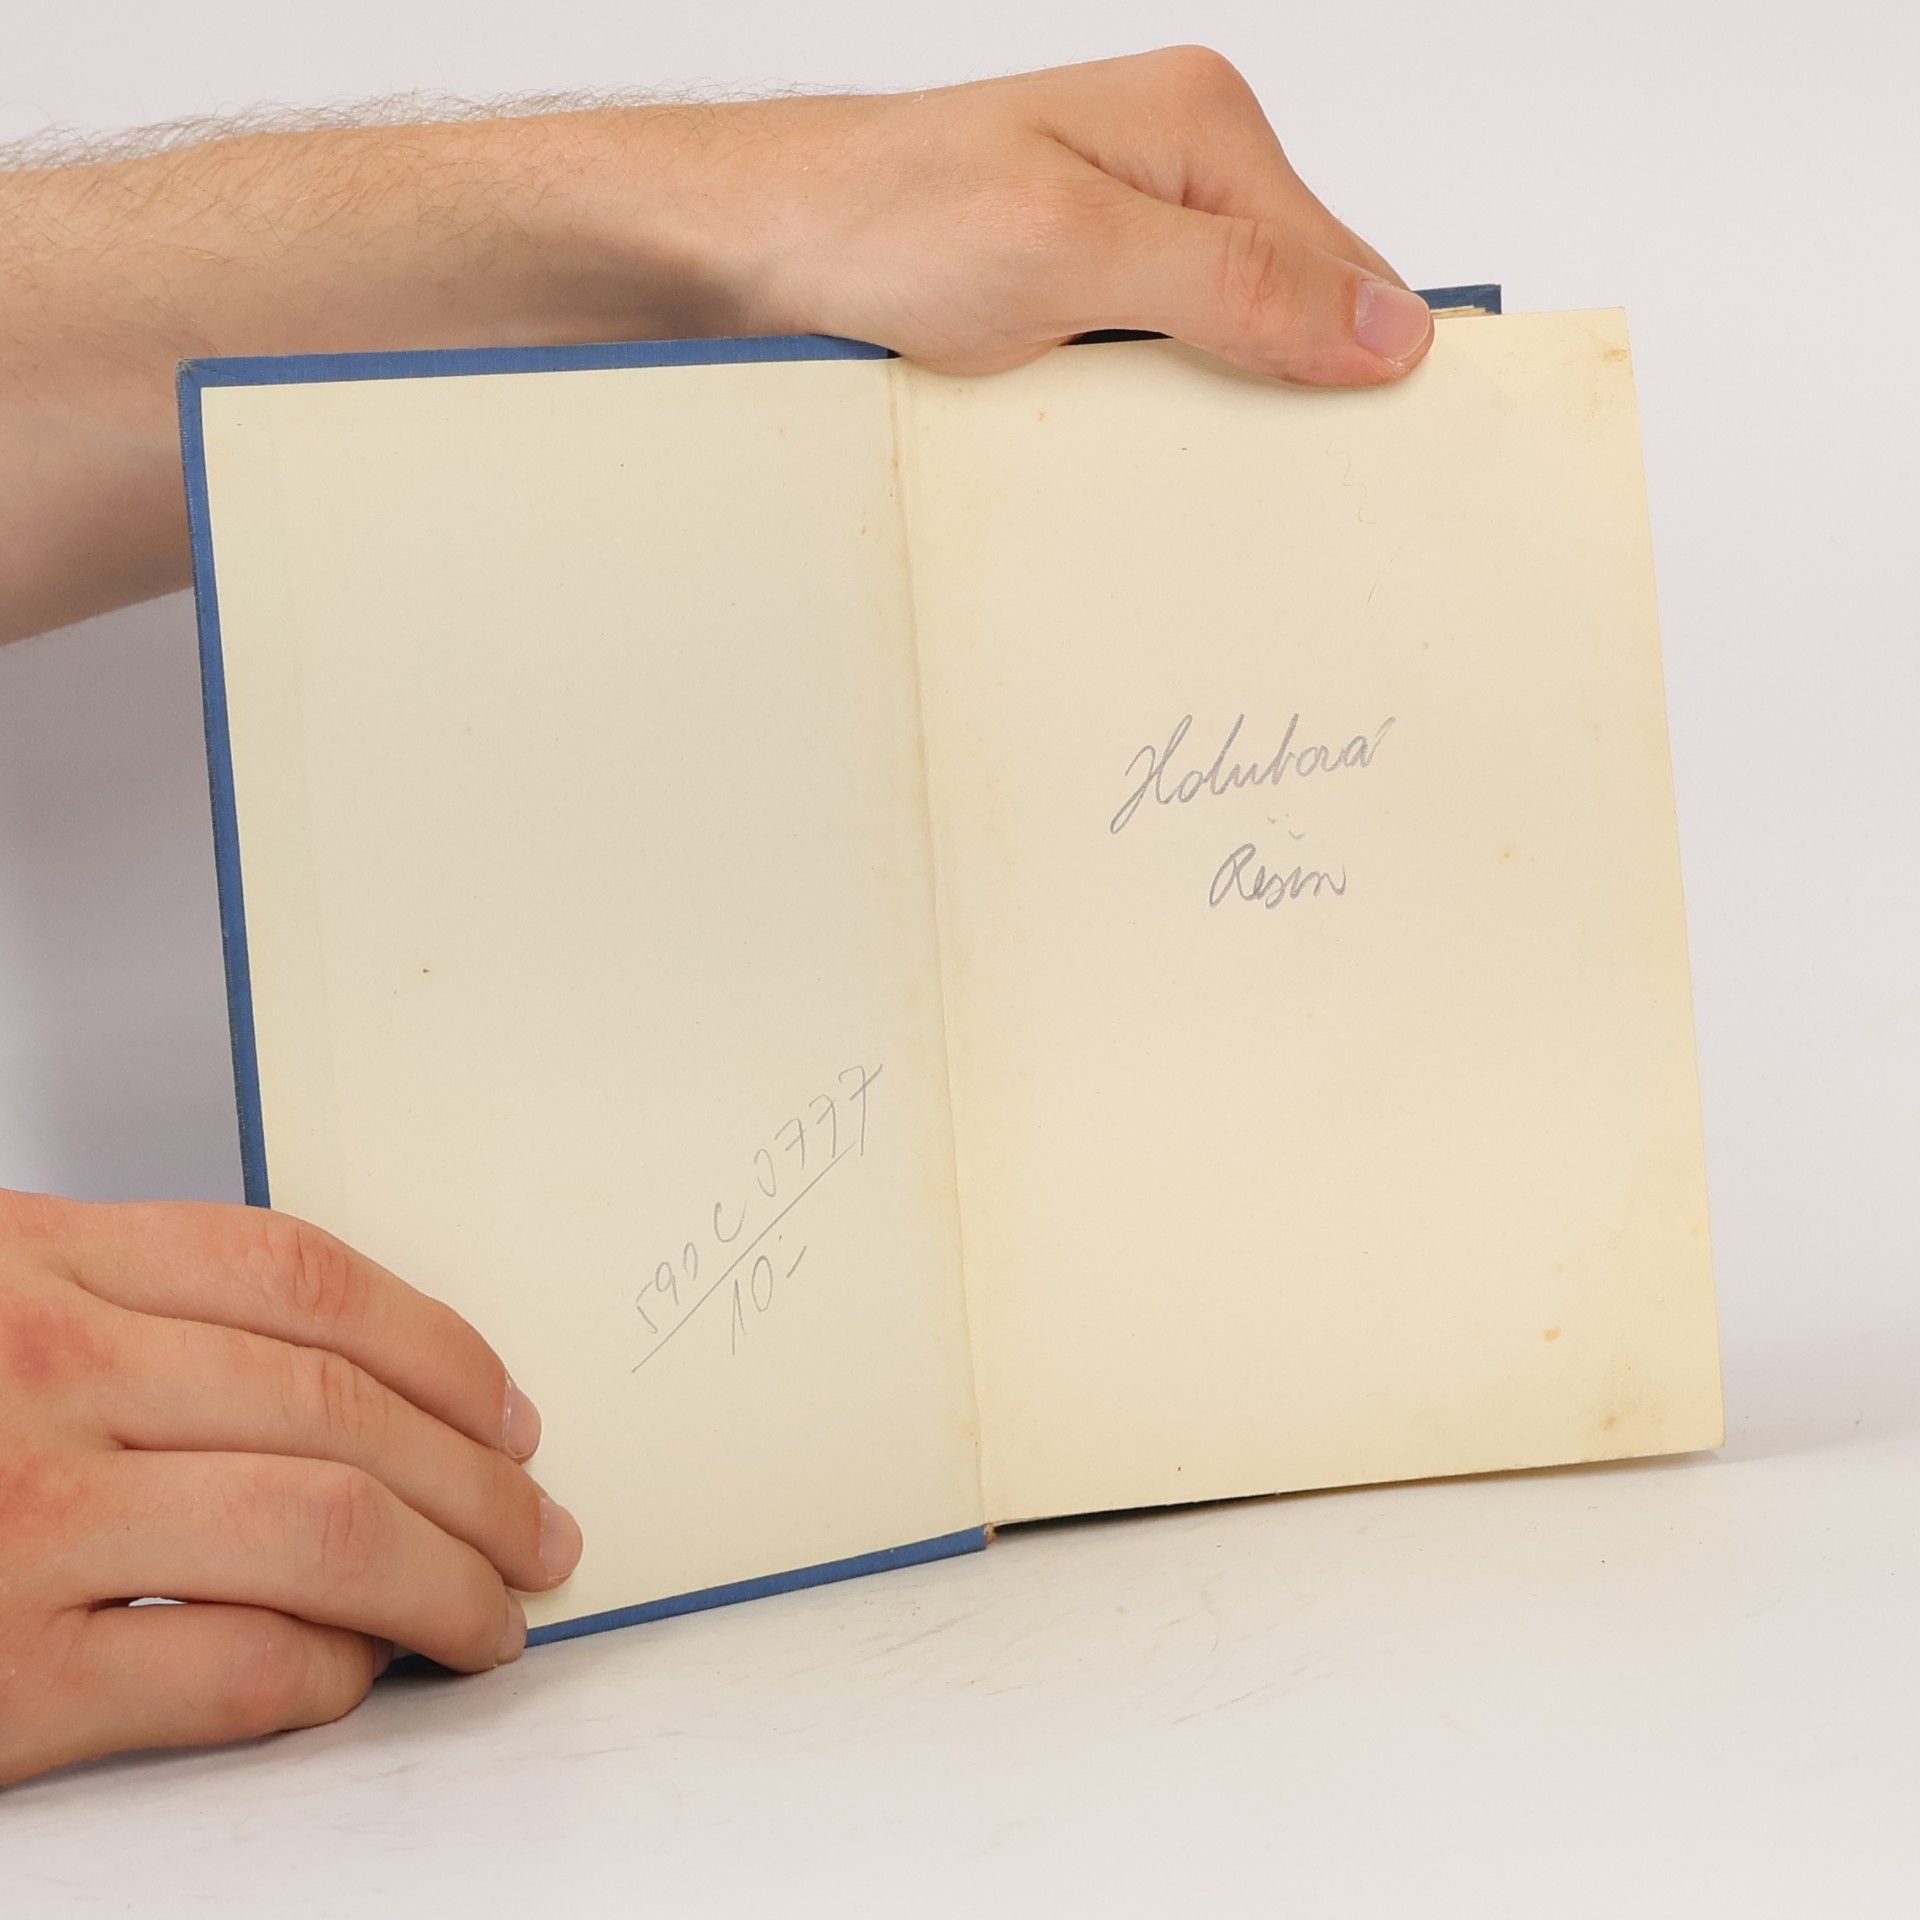 590 C 0777
10.-
Holubová
Řešín